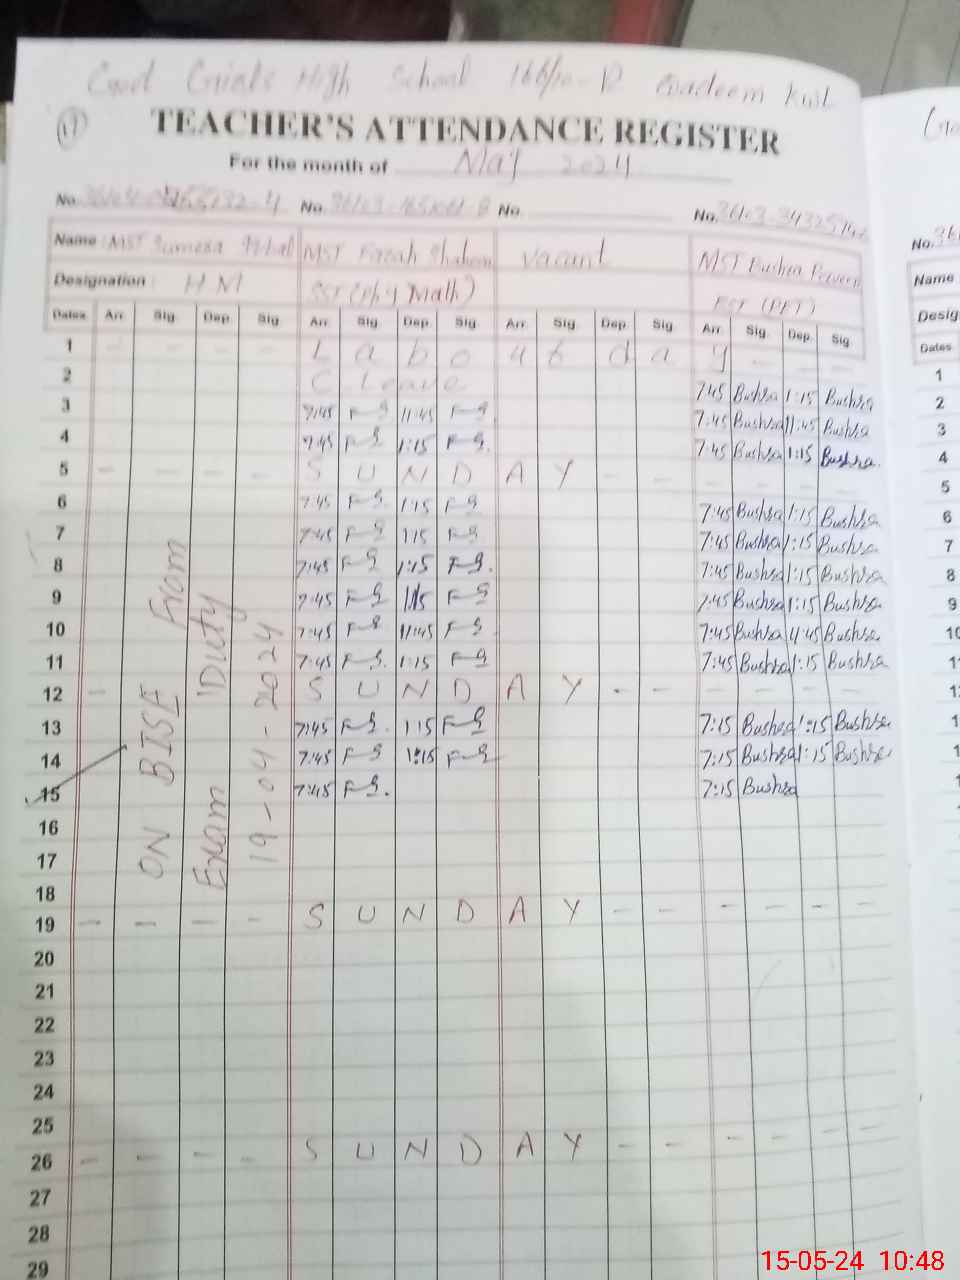 Govt Girls High School 166/10-R Khl
(1)
TEACHER'S ATTENDANCE REGISTER
For the month of May 2024
No. No. No. No.
Name: MST Iqbal MST Farah Shaheen Vacant MST Bushra Parveen
Designation: HM SST (Phy Math) EST (PET)
Dates Arr. Sig. Dep. Sig. Arr. Sig. Dep. Sig. Arr. Sig. Dep. Sig. Arr. Sig. Dep. Sig.
1 - - - - L a b o u r d a y - - -
2 C Leave 7:45 Bushra 1:15 Bushra
3 7:45 F-S 11:45 F-S 7:45 Bushra 11:45 Bushra
4 7:45 F-S 1:15 F-S. 7:45 Bushra 1:15 Bushra.
5 - - - - S U N D A Y - - - - - -
6 7:45 F-S 1:15 F-S 7:45 Bushra 1:15 Bushra
7 7:45 F-S 1:15 F-S 7:45 Bushra 1:15 Bushra
8 7:45 F-S 1:15 F-S. 7:45 Bushra 1:15 Bushra
9 7:45 F-S 1:15 F-S 7:45 Bushra 1:15 Bushra
10 7:45 F-S 11:45 F-S 7:45 Bushra 11:45 Bushra
11 7:45 F-S. 1:15 F-S 7:45 Bushra 1:15 Bushra
12 - S U N D A Y - - - - - -
13 7:45 F-S. 1:15 F-S 7:15 Bushra 1:15 Bushra
14 7:45 F-S 1:15 F-S 7:15 Bushra 1:15 Bushra
15 7:45 F-S. 7:15 Bushra
ON BISE From
Exam Duty
19-04-2024
16
17
18
19 - - - - S U N D A Y - - - - - -
20
21
22
23
24
25
26 - - - - S U N D A Y - - - - - -
27
28
29
No.
Name
Desig
Dates
1
2
3
4
5
6
7
8
9
10
15-05-24 10:48